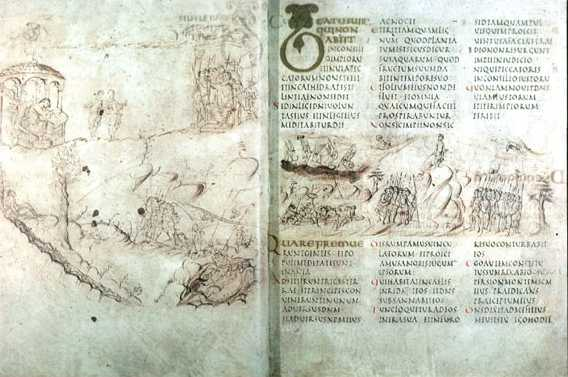 BEATUSUIR
QUINON
ABIIT
INCONSILI
OIMPIORU
ETINUIAPEC
CATORUMNONSTETIT
ETINCATHEDRAPESTI
LENTIAENONSEDIT
SEDINLEGEDNIUOLUN
TASEIUS ETINLEGEEIUS
MEDITABITURDIE
ACNOCTE
ETERITTAMQUAMLIG
NUM QUODPLANTA
TUMESTSECUSDECUR
SUSAQUARUM QUOD
FRUCTUMSUUMDA
BITINTEMPORESUO
ETFOLIUMEIUSNONDE
FLUET ETOMNIA
QUAECUMQUEFACIET
PROSPERABUNTUR
NONSICIMPIINONSIC
SEDTAMQUAMPUL
UISQUEMPROICIT
UENTUSAFACIETERRAE
IDEONONRESURGUNT
IMPIIINIUDICIO
NEQUEPECCATORES
INCONSILIOIUSTORUM
QUONIAMNOUITDNS
UIAMIUSTORUM
ETITERIMPIORUM
PERIBIT
QUAREFREMUE
RUNTGENTES ETPO
PULIMEDITATISUNT
INANIA
ADSTITERUNTREGESTER
RAE ETPRINCIPESCON
UENERUNTINUNUM
ADUERSUSDNM
ETADUERSUSXPMEIUS
DISRUMPAMUSUINCU
LAEORUM ETPROICI
AMUSANOBISIUGUM
IPSORUM
QUIHABITATINCAELIS
INRIDEBITEOS ETDNS
SUBSANNABITEOS
TUNCLOQUETURADEOS
INIRASUA ETINFURO
RESUOCONTURBABIT
EOS
EGOAUTEMCONSTITU
TUSSUMREXABEOSU
PERSIONMONTEMSCM
EIUS PRAEDICANS
PRAECEPTUMEIUS
DNSDIXITADMEFILIUS
MEUSESTU EGOHODIE